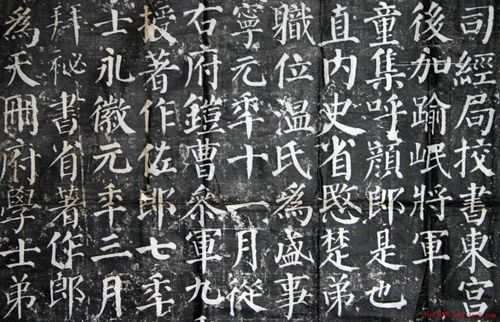 司經局挍書東宮
後加踰岷將軍
童集呼顏郎是也
直內史省愍楚弟
職位溫氏為盛事
寧元年十一月從
右府鎧曹叅軍九
授著作佐郎七年
士永徽元年三月
拜祕書省著作郎
為天冊府學士弟